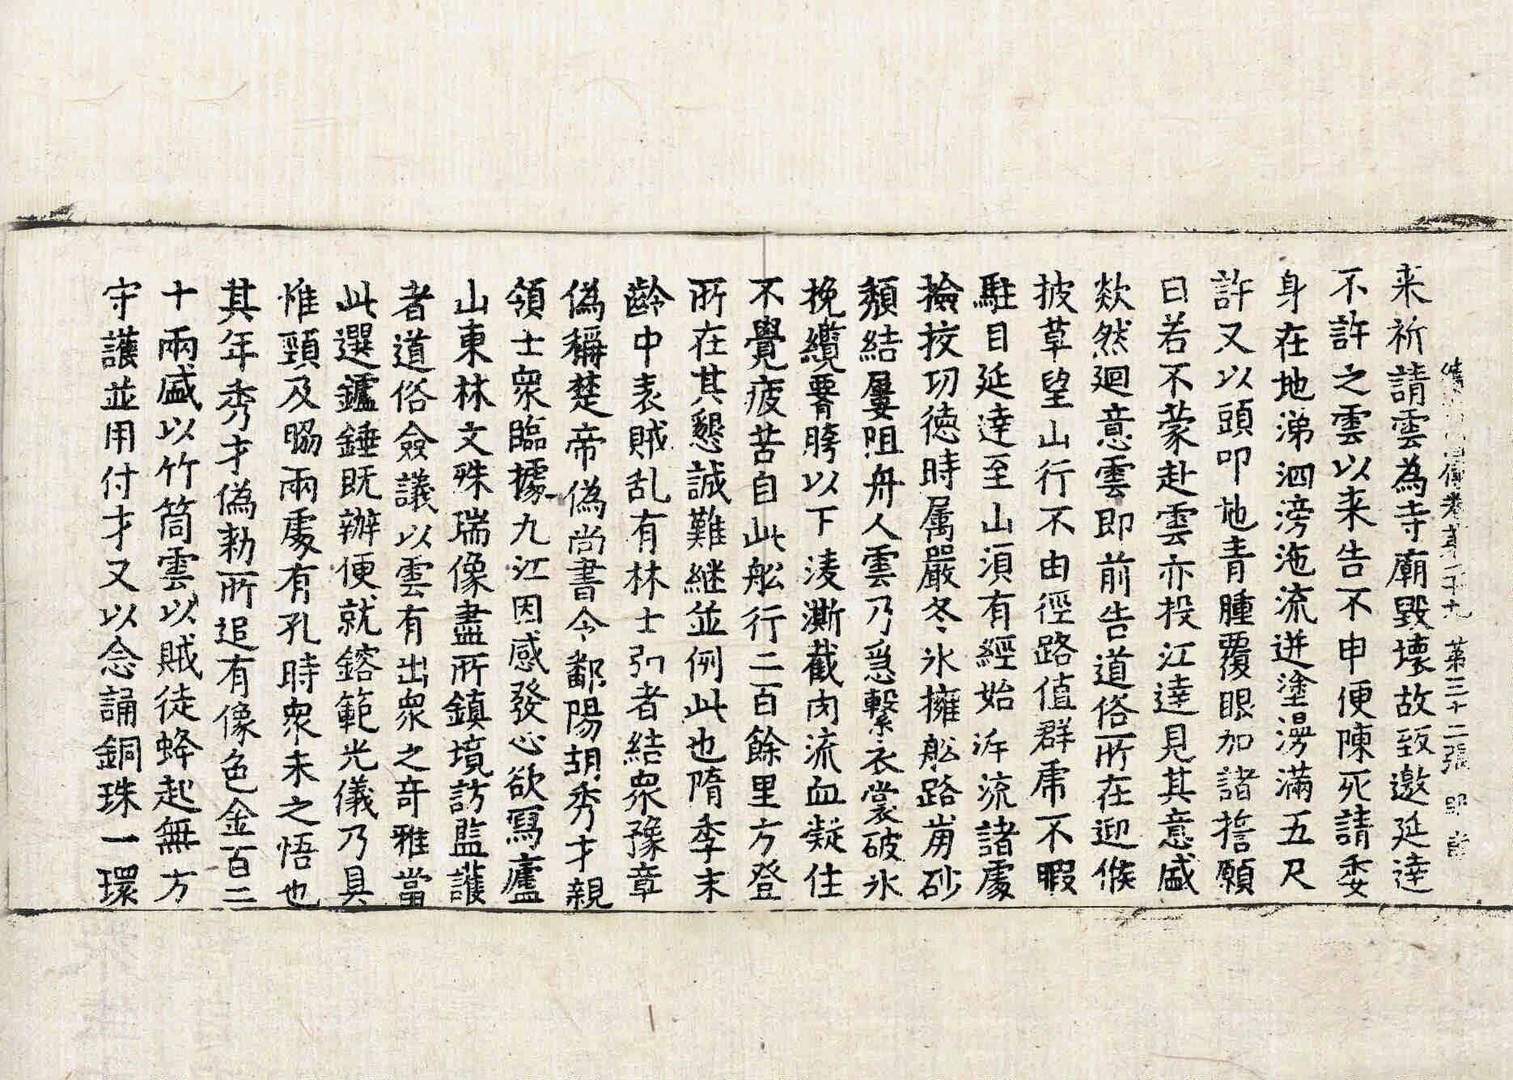 傳卷第二十九 第三十二張
来祈請雲為寺廟毀壞故致邀延達
不許之雲以来告不申便陳死請委
身在地涕泗滂沲流迸塗漫滿五尺
許又以頭叩地青腫覆眼加諸擔願
曰若不蒙赴雲亦投江達見其意盛
欻然廻意雲即前告道俗所在迎候
披草望山行不由徑路值群虎不暇
駐目延達至山湏有經始泝流諸處
撿挍功徳時属嚴冬氷擁舩路崩砂
頹結屢阻舟人雲乃急繫衣裳破氷
挽纜腰膀以下淩澌截肉流血凝住
不覺疲苦自此舩行二百餘里方登
所在其懇誠難継並例此也隋季末
齡中表賊乱有林士引者結衆豫章
偽稱楚帝偽尚書令鄱陽胡秀才親
領士衆臨據九江因感發心欲寫廬
山東林文殊瑞像盡所鎮境訪監護
者道俗僉議以雲有出衆之奇雅當
此選鑪錘既辦便就鎔範光儀乃具
惟頸及脇兩處有孔時衆未之悟也
其年秀才偽勑所追有像色金百二
十兩盛以竹筒雲以賊徒蜂起無方
守護並用付才又以念誦銅珠一環